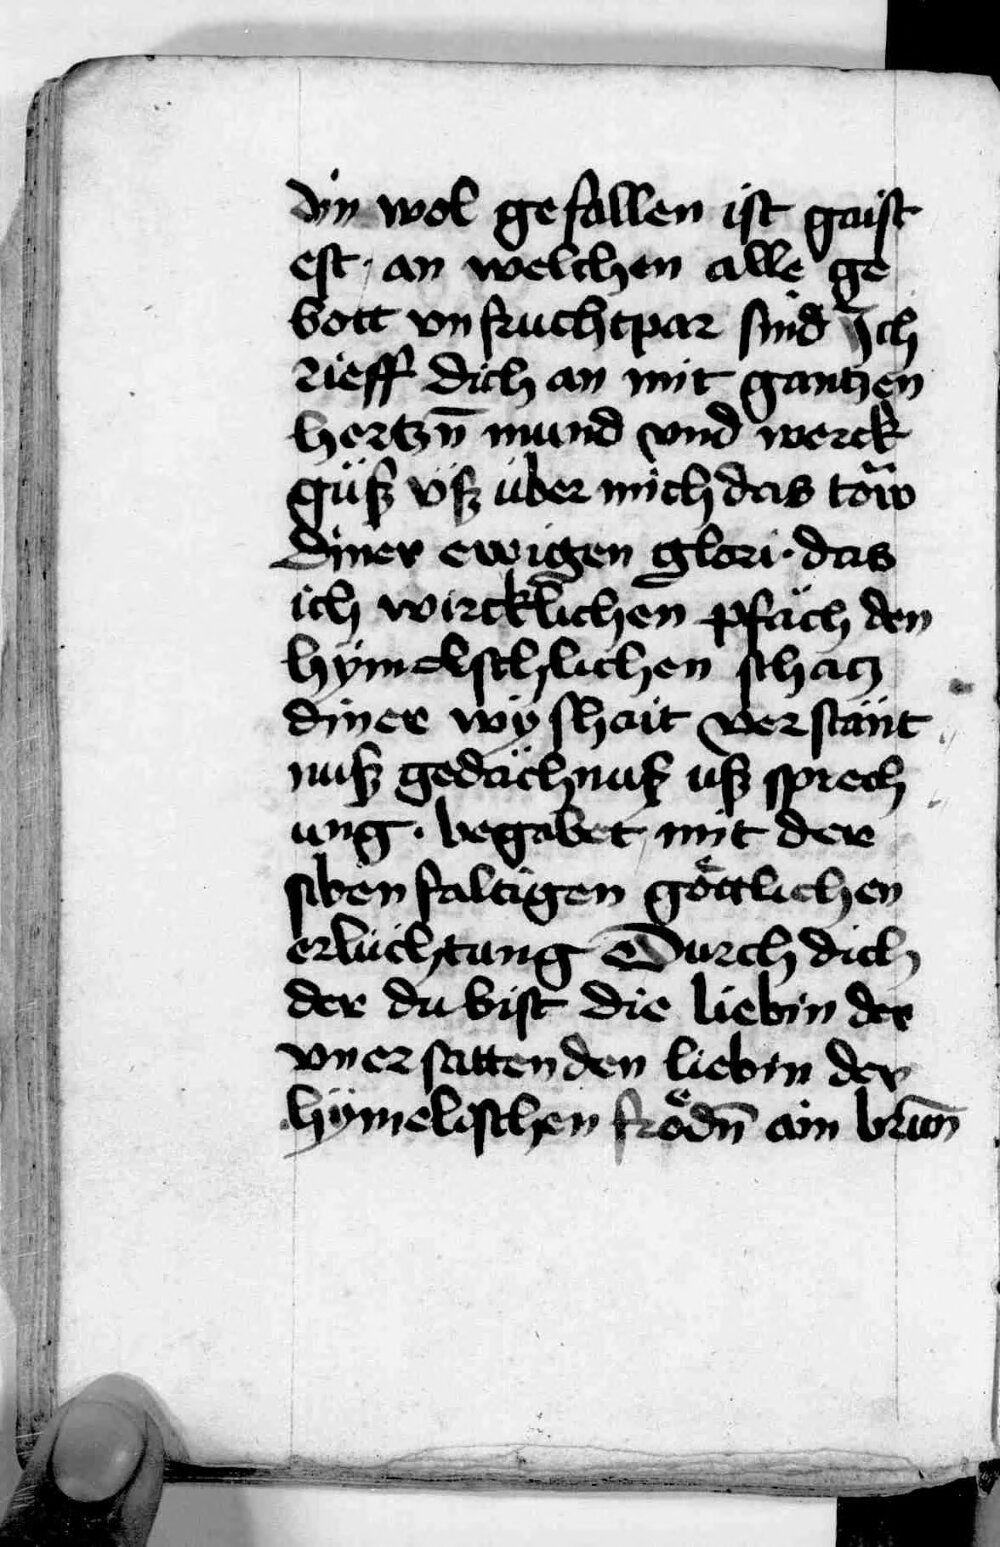 din wol gefallen ist gaist
est · an welchen alle ge
bott vnfruchtpar sind Ich
rieff dich an mit gantzen
hertzn̄ mund vnd werck
güß vß über mich das tow
diner ewigen glori · das
ich wircklichen pfäch den
hymelschlichen schacz
diner wyshait verstänt
nuß gedächnuß uß sprech
ung · begabet mit der
siben faltigen göttlichen
erlüchtung Durch dich
der du bist die liebin der
vnersattenden liebin der
hÿmelischen frödn̄ ain brun̄